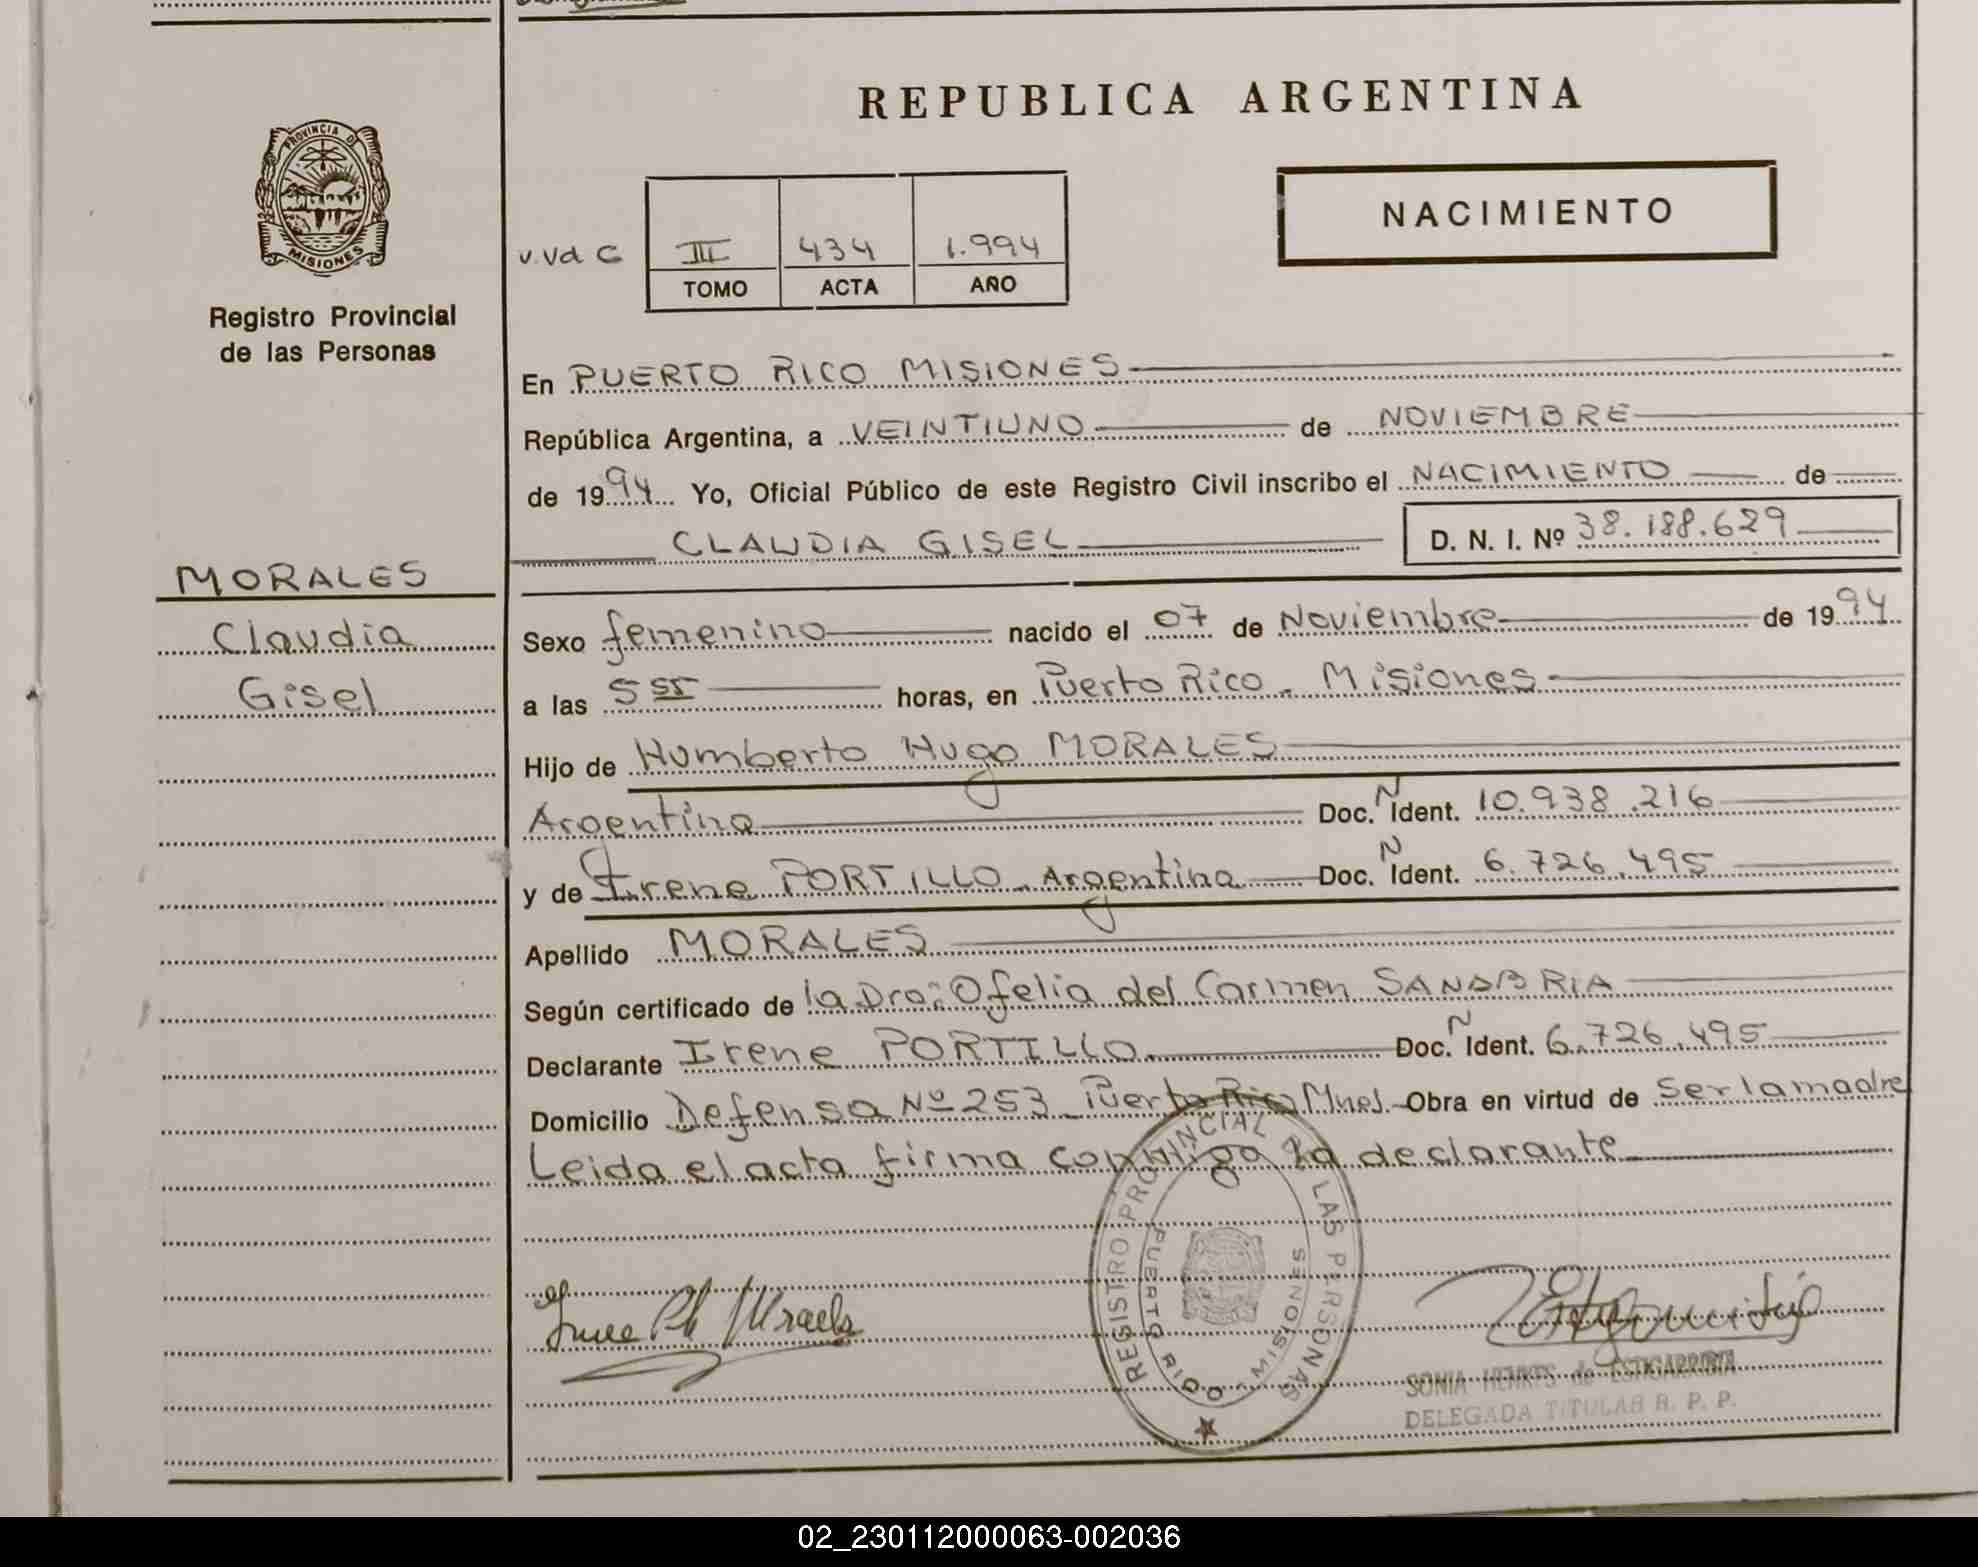 REPUBLICA ARGENTINA
PROVINCIA D
MISIONES
Registro Provincial
de las Personas
NACIMIENTO
v.vd C III 434 1.994
TOMO ACTA AÑO
En PUERTO RICO MISIONES
República Argentina, a VEINTIUNO de NOVIEMBRE
de 1994 Yo, Oficial Público de este Registro Civil inscribo el NACIMIENTO de
CLAUDIA GISEL D. N. I. Nº 38.188.629
MORALES
Claudia
Gisel
Sexo femenino nacido el 07 de Noviembre de 1994
a las 5 55 horas, en Puerto Rico - Misiones
Hijo de Humberto Hugo MORALES
Argentina Doc. N Ident. 10.938.216
y de Irene PORTILLO - Argentina Doc. N Ident. 6.726.495
Apellido MORALES
Según certificado de la Dra: Ofelia del Carmen SANABRIA
Declarante Irene PORTILLO Doc. N Ident. 6.726.495
Domicilio Defensa Nº 253 - Puerto Rico Mnes. Obra en virtud de Ser la madre
Leida el acta firma conmigo la declarante
REGISTRO PROVINCIAL DE LAS PERSONAS
PUERTO RICO - MISIONES
SONIA HENKES de ESTIGARRIBIA
DELEGADA TITULAR R. P. P.
02_230112000063-002036